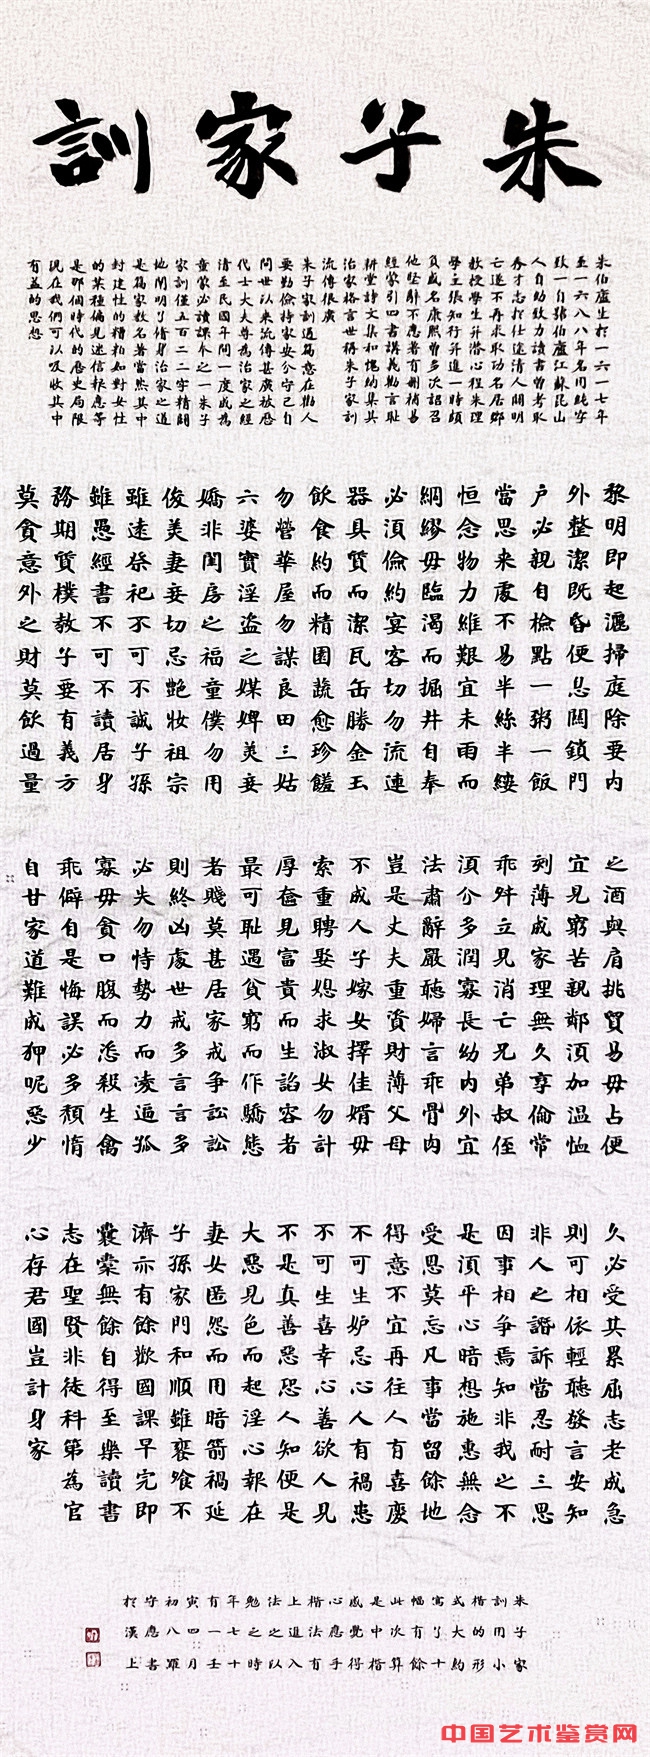 朱子家訓
朱伯廬生於一六一七年
至一六八八年名用純字
致一自號伯廬江蘇昆山
人自幼致力讀書曾考取
秀才志於仕途清人關明
亡遂不再求取功名居鄉
教授學生并潛心程朱理
學主張知行并進一時頗
負盛名康熙曾多次詔召
他堅辭不應著有刪補易
經蒙引四書講義勸言恥
耕堂詩文集和愧納集其
治家格言世稱朱子家訓
流傳很廣
朱子家訓通篇意在勸人
要勤儉持家安分守己自
問世以來流傳甚廣被歷
代士大夫尊為治家之經
清至民國年間一度成為
童蒙必讀課本之一朱子
家訓僅五百二二字精闢
地闡明了修身治家之道
是篇家教名著當然其中
封建性的糟粕如對女性
的某種偏見迷信報應等
是那個時代的歷史局限
現在我們可以吸收其中
有益的思想
黎明即起灑掃庭除要內
外整潔既昏便息關鎖門
户必親自檢點一粥一飯
當思来處不易半絲半縷
恒念物力維艱宜未雨而
綢繆毋臨渴而掘井自奉
必須儉約宴客切勿流連
器具質而潔瓦缶勝金玉
飲食約而精園蔬愈珍饈
勿營華屋勿謀良田三姑
六婆實淫盜之媒婢美妾
嬌非閨房之福童僕勿用
俊美妻妾切忌艷妝祖宗
雖遠祭祀不可不誠子孫
雖愚經書不可不讀居身
務期質樸教子要有義方
莫貪意外之財莫飲過量
之酒與肩挑貿易毋占便
宜見窮苦親鄰須加溫恤
刻薄成家理無久享倫常
乖舛立見消亡兄弟叔侄
須分多潤寡長幼内外宜
法肅辭嚴聽婦言乖骨肉
豈是丈夫重資財薄父母
不成人子嫁女擇佳婿毋
索重聘娶媳求淑女勿計
厚奩見富貴而生諂容者
最可恥遇貧窮而作驕態
者賤莫甚居家戒爭訟訟
則終凶處世戒多言言多
必失勿恃勢力而凌逼孤
寡毋貪口腹而恣殺生禽
乖僻自是悔誤必多頹惰
自甘家道難成狎昵惡少
久必受其累屈志老成急
則可相依輕聽發言安知
非人之譖訴當忍耐三思
因事相爭焉知非我之不
是須平心暗想施惠無念
受恩莫忘凡事當留餘地
得意不宜再往人有喜慶
不可生妒忌心人有禍患
不可生喜幸心善欲人見
不是真善惡恐人知便是
大惡見色而起淫心報在
妻女匿怨而用暗箭禍延
子孫家門和順雖饔飧不
濟亦有餘歡國課早完即
囊橐無餘自得至樂讀書
志在聖賢非徒科第為官
心存君國豈計身家
朱子家
訓用小
楷的形
式大約
寫了十
幅有餘
此次算
是中楷
感覺得
心應手
楷法有
上道入
法之以
勉之時
年七十
有一壬
寅四月
初八雖
守應書
於漢上
中国艺术鉴赏网